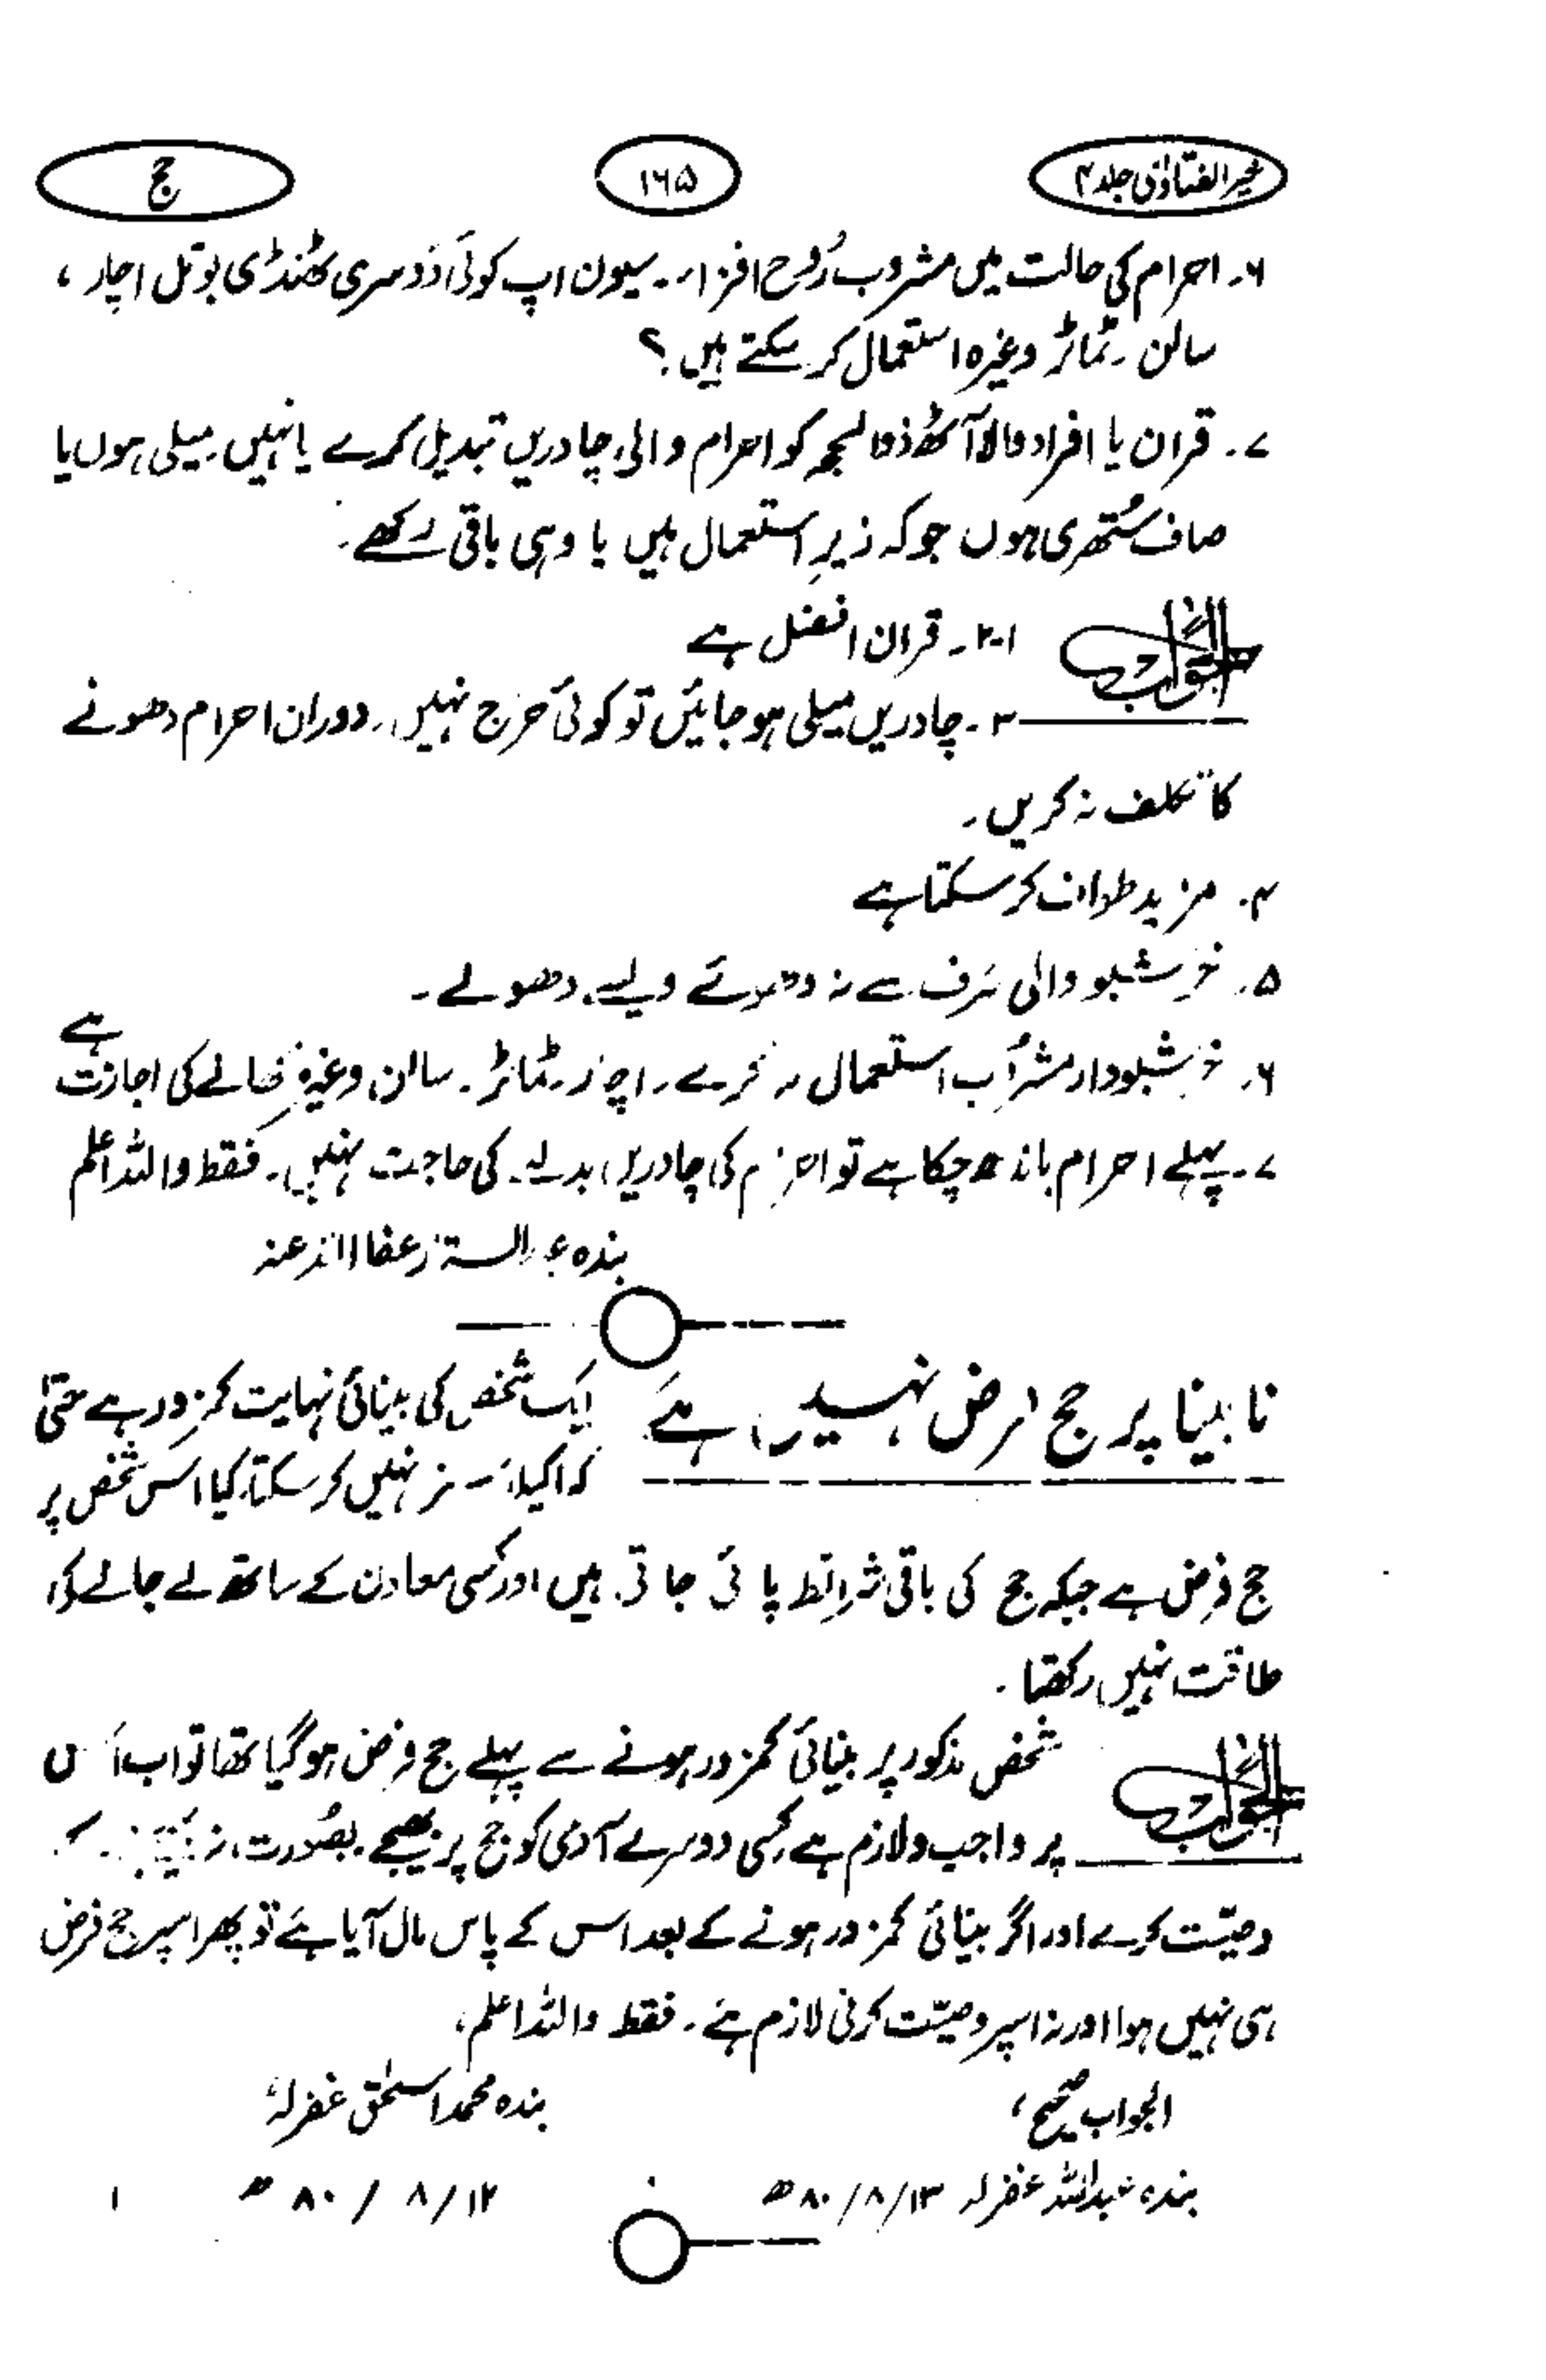 خیر الفتاویٰ جلد ۴
۱۶۵
حج
۶۔ احرام کی حالت میں مشروب رُوح افزا ۔ سیون اپ کوئی دَوسری ٹھنڈی بوتل اچار ،
سالن ۔ ٹماٹر وغیرہ استعمال کر سکتے ہیں ؟
۷۔ قران یا افراد والا آٹھ ذوالحجہ کو احرام والی چادریں تبدیل کرے یا نہیں ۔ میلی ہوں یا
صاف سُتھری ہوں جو کہ زیرِ استعمال ہیں یا وہی باقی رکھے ۔
الجواب
۲،۱۔ قران افضل ہے
۳۔ چادریں میلی ہو جائیں تو کوئی حَرج نہیں ۔ دوران احرام دھونے
کا تکلف نہ کریں ۔
۴۔ مزید طواف کر سکتا ہے
۵۔ خوشبو والی سَرف سے نہ دھوئے ویسے دھولے ۔
۶۔ خوشبودار مشرُوب استعمال نہ کرے ۔ اچار ۔ ٹماٹر ۔ سالن وغیرہ کھانے کی اجازت ہے
۷۔ پہلے احرام باندھ چکا ہے تو احرام کی چادریں بدلنے کی حاجت نہیں ۔ فقط واللہ اعلم
بندہ عبدالستار عفا اللہ عنہ
نابینا پر حج فرض نہیں ہے
ایک شخص کی بینائی نہایت کمزور ہے حتیٰ
کہ اکیلا سفر نہیں کر سکتا ۔ کیا اس شخص پر
حج فرض ہے جبکہ حج کی باقی شرائط پائی جاتی ہیں اور کسی معاون کے ساتھ لے جانے کی
طاقت نہیں رکھتا ۔
الجواب
شخص مذکور پر بینائی کمزور ہونے سے پہلے حج فرض ہو گیا تھا تو اب اُس
پر واجب و لازم ہے کسی دوسرے آدمی کو حج پر بھیجے ۔ بصُورت
وصیّت کرے اور اگر بینائی کمزور ہونے کے بعد اس کے پاس مال آیا ہے تو پھر اسپر حج فرض
ہی نہیں ہوا اور نہ اسپر وصیّت کرنی لازم ہے ۔ فقط واللہ اعلم ،
الجواب صحیح ،
بندہ محمد اسحٰق غفرلہٗ
بندہ عبداللہ غفرلہ ۱۳/۸/۸۰ھ
۱۲/۸/۸۰ھ